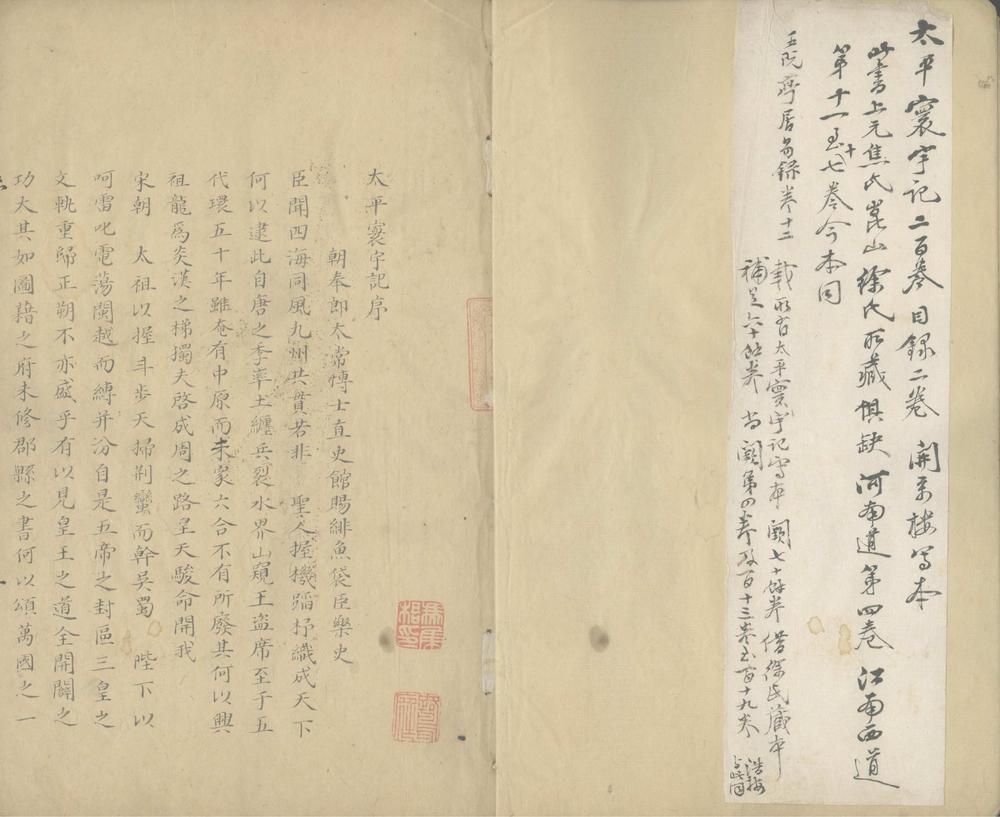 太平寰宇記二百卷目錄二卷　開萬樓寫本
此書上元焦氏崑山徐氏所藏俱缺河南道第四卷江南西道
第十一至十七卷今本同
居易錄卷十二
載所有太平寰宇記寫本闕七十餘卷借徐氏藏本
補足六十餘卷尚闕第四卷及百十三卷至百十九卷
太平寰宇記序
朝奉郎太常博士直史館賜緋魚袋臣樂史
臣聞四海同風九州共貫若非　聖人握機蹈杼織成天下
何以逮此自唐之季率土纏兵裂水界山窺王盜席至于五
代環五十年雖奄有中原而未家六合不有所廢其何以興
祖龍爲炎漢之梯獨夫啓成周之路皇天駿命開我
宋朝　太祖以握斗步天掃荆蠻而幹吳蜀　陛下以
呵雷叱電蕩閩越而縛并汾自是五帝之封區三皇之
文軌重歸正朔不亦盛乎有以見皇王之道全開闢之
功大其如圖籍之府未修郡縣之書何以頌萬國之一